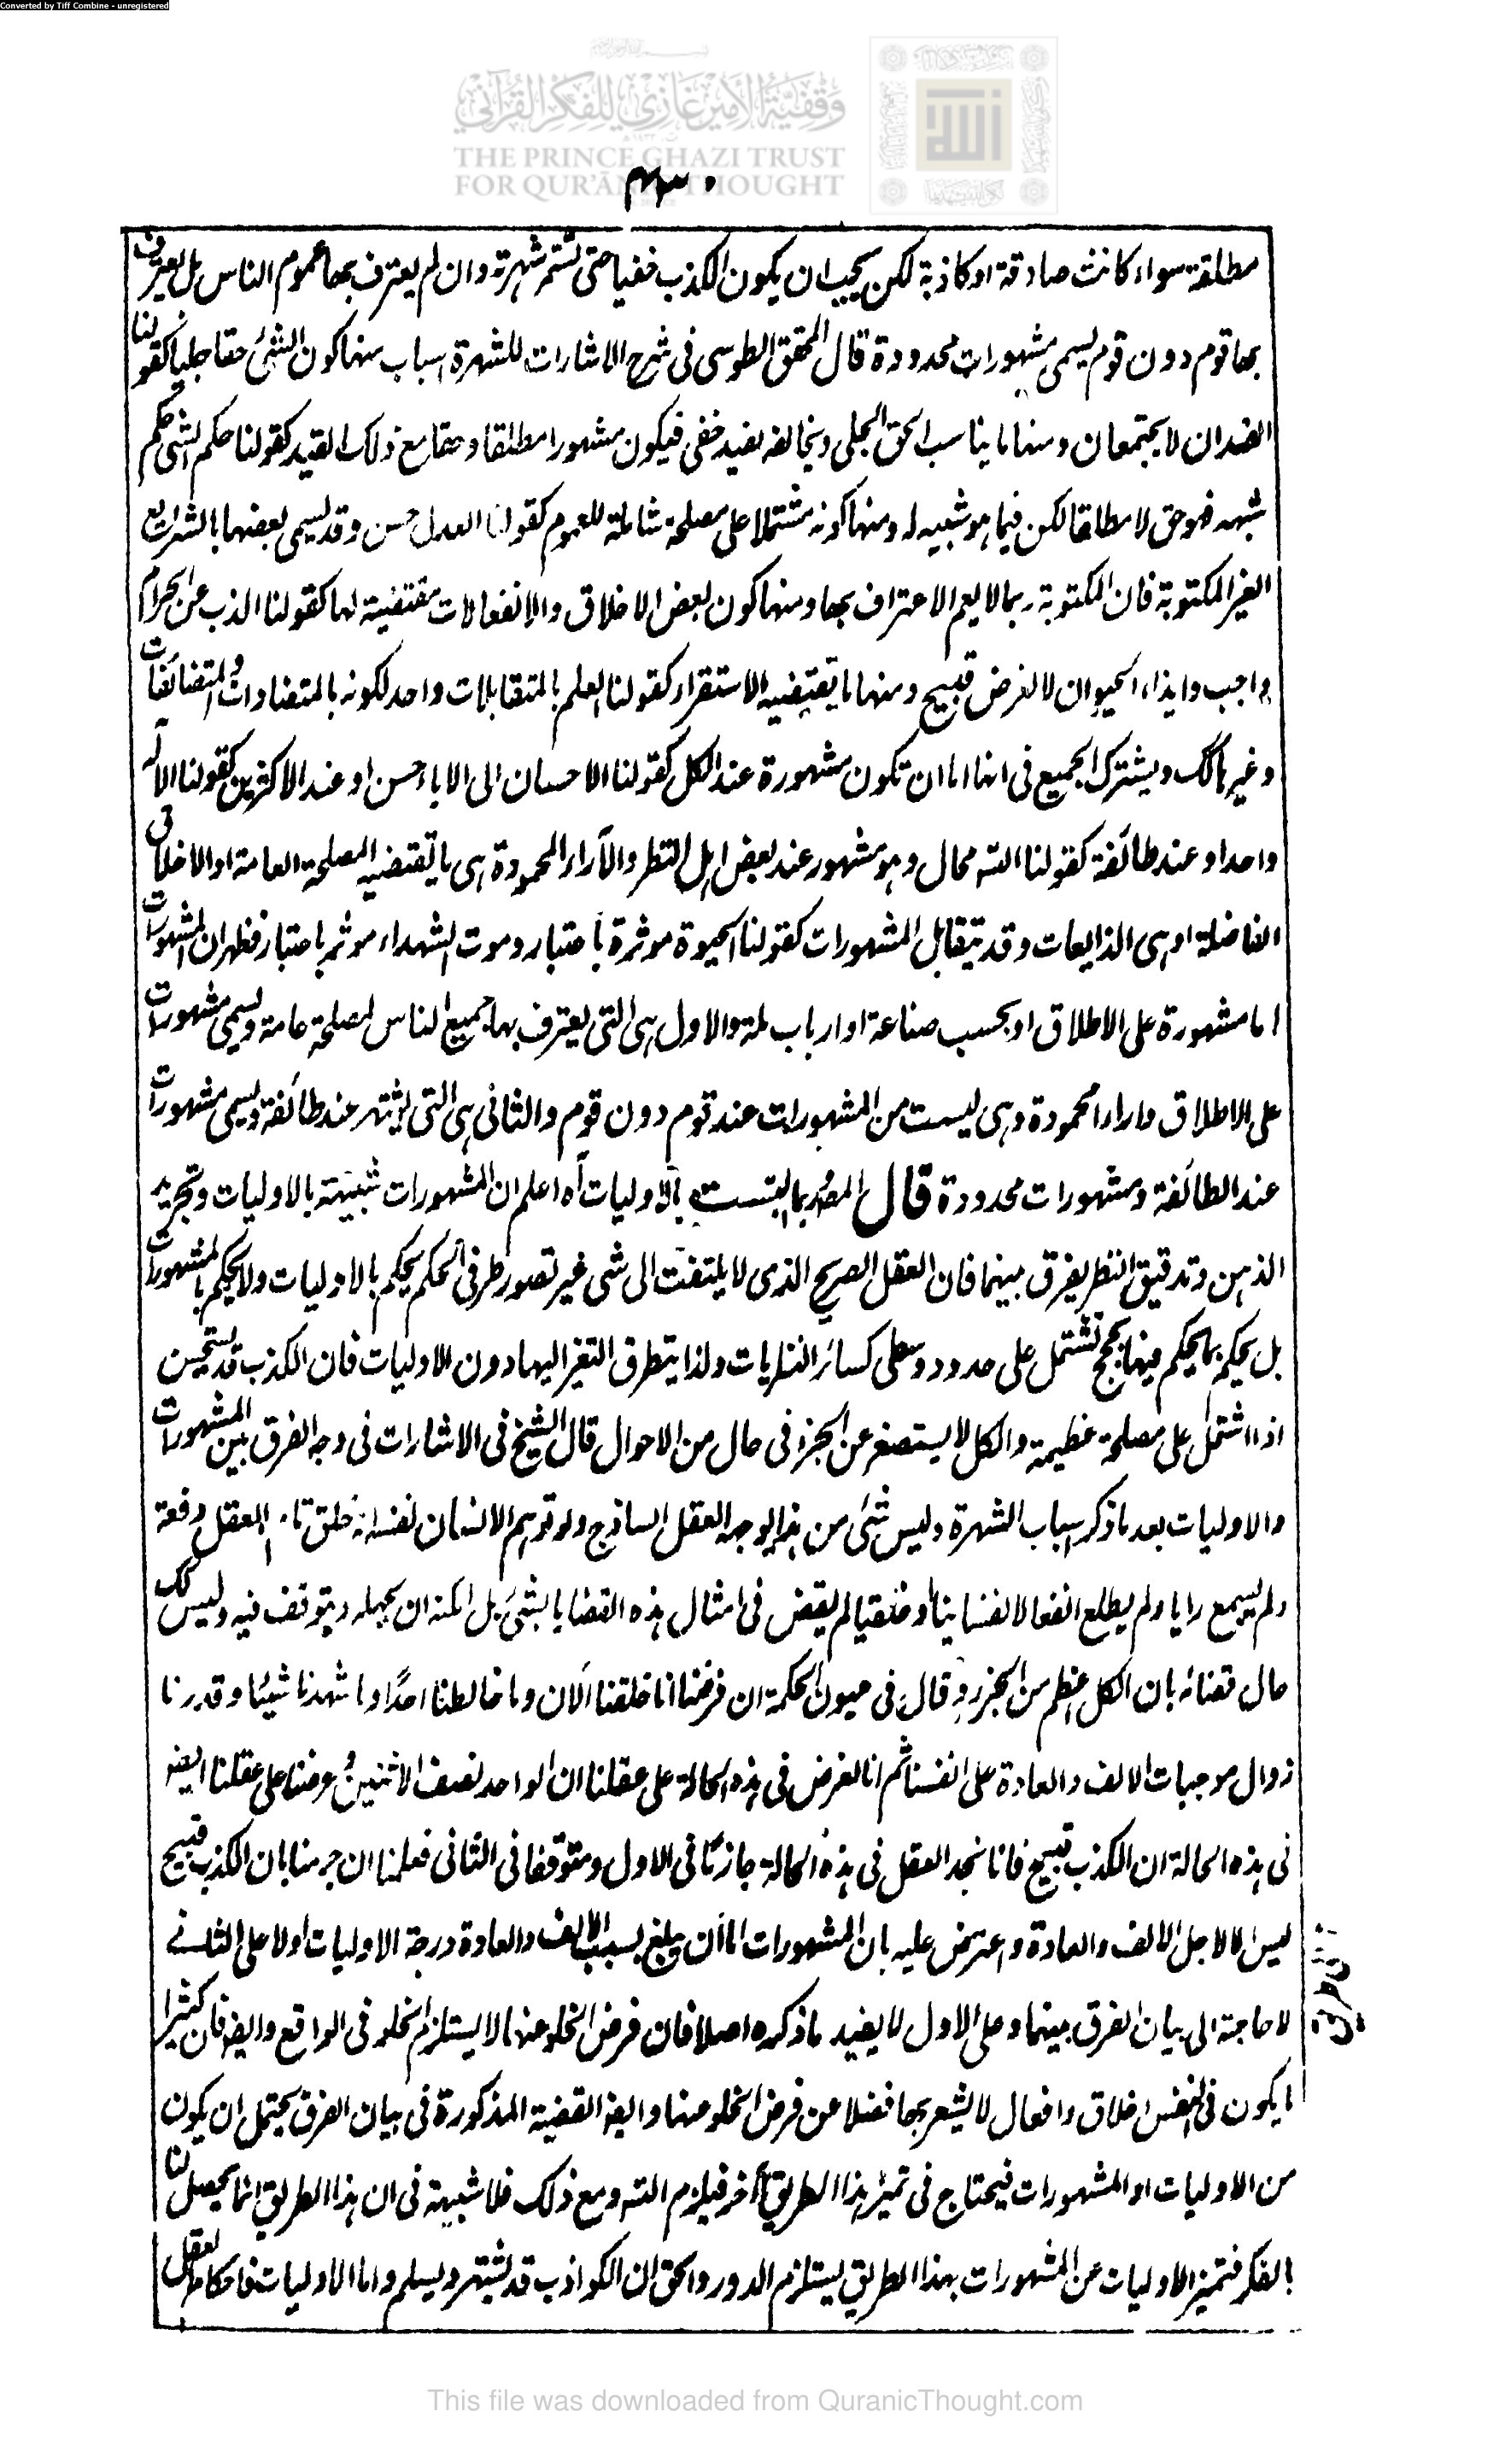 Converted by Tiff Combine - unregistered
وقفية الأمير غازي للفكر القرآني
THE PRINCE GHAZI TRUST
FOR QUR'ĀNIC THOUGHT
مطلقة سواء كانت صادقة او كاذبة لكن يجب ان يكون الكذب خفيا حتى تستمر شهرته وان لم يعترف بها عموم الناس بل يعترف
بها قوم دون قوم يسمى مشهورات محدودة قال المحقق الطوسى فى شرح الاشارات للشهرة اسباب منها كون الشئ حقا جليا كقولنا
الضدان لا يجتمعان ومنها ما يناسب الحق الجلى ويخالفه بقيد خفى فيكون مشهورا مطلقا وحقا مع ذلك القيد كقولنا حكم الشئ حكم
شبهه فهو حق لا مطلقا لكن فيما هو شبيه له ومنها كونه مشتملا على مصلحة شاملة للعموم كقولنا العدل حسن وقد يسمى بعضها بالشرايع
الغير المكتوبة فان المكتوبة ربما لا يعم الاعتراف بها ومنها كون بعض الاخلاق والانفعالات مقتضية لها كقولنا الذب عن الحرام
واجب وايذاء الحيوان لا لغرض قبيح ومنها ما يقتضيه الاستقرار كقولنا العلم بالمتقابلات واحد لكونه بالمتضادات والمتضائفات
وغير ذلك ويشترك الجميع فى انها اما ان تكون مشهورة عند الكل كقولنا الاحسان الى الاباء حسن او عند الاكثرين كقولنا الاله
واحد او عند طائفة كقولنا التسه محال وهو مشهور عند بعض اهل النظر والآراء المحمودة هى ما تقتضيه المصلحة العامة او الاخلاق
الفاضلة او هى الذايعات وقد يتقابل المشهورات كقولنا الحيوة موثرة باعتبار وموت الشهداء موثر باعتبار فظهر ان المشهورات
اما مشهورة على الاطلاق او بحسب صناعة او ارباب ملة والاول هى التى يعترف بها جميع الناس لمصلحة عامة ويسمى مشهورات
على الاطلاق واراء محمودة وهى ليست من المشهورات عند قوم دون قوم والثانى هى التى يشتهر عند طائفة ويسمى مشهورات
عند الطائفة ومشهورات محدودة قال المصر ربما التبست بالاوليات آه اعلم ان المشهورات شبيهة بالاوليات وتجريد
الذهن وتدقيق النظر يفرق بينهما فان العقل الصريح الذى لا يلتفت الى شى غير تصور طرفى الحكم يحكم بالاوليات ولا يحكم بالمشهورات
بل يحكم بما يحكم فيها بحجج تشتمل على حدود وسطى كسائر النظريات ولذا يتطرق التغير اليها دون الاوليات فان الكذب قد يستحسن
اذا اشتمل على مصلحة عظيمة والكل لا يستصغر عن الجزء فى حال من الاحوال قال الشيخ فى الاشارات فى وجه الفرق بين المشهورات
والاوليات بعد ما ذكر اسباب الشهرة وليس شئ من هذا يوجبه العقل الساذج ولو توهم الانسان نفسه انه خلق تام العقل دفعة
ولم يسمع رايا ولم يطلع انفعالا نفسانيا وخلقيا لم يقض فى امثال هذه القضايا بشئ بل امكنه ان يجهله ويتوقف فيه وليس كك
حال قضائه بان الكل اعظم من الجزء وقال فى عيون الحكمة ان فرضنا انا خلقنا الان وما خالطنا احدا وما شهدنا شيئا وقدرنا
زوال موجبات الالف والعادة على انفسنا ثم انا لغرض فى هذه الحالة على عقلنا ان الواحد نصف الاثنين وعرضنا على عقلنا ايضه
فى هذه الحالة ان الكذب قبيح فانا نجد العقل فى هذه الحالة جازما فى الاول ومتوقفا فى الثانى فعلمنا ان جزمنا بان الكذب قبيح
ليس الا لاجل الالف والعادة واعترض عليه بان المشهورات اما ان يبلغ بسبب الالف والعادة درجة الاوليات اولا على الثانے
لا حاجة الى بيان الفرق بينهما وعلى الاول لا يفيد ما ذكره اصلا فان فرض الخلو عنها لا يستلزم الخلو فى الواقع وايضه فان كثيرا
ما يكون فى النفس اخلاق وافعال لا يشعر بها فضلا عن فرض الخلو عنها وايضه القضية المذكورة فى بيان الفرق يحتمل ان يكون
من الاوليات او المشهورات فيحتاج فى تميز هذا الطريق آخر فيلزم التسه ومع ذلك فلا شبهة فى ان هذا الطريق انما يحصل لنا
بالفكر فتميز الاوليات عن المشهورات بهذا الطريق يستلزم الدور والحق ان الكواذب قد تشتهر ويسلم واما الاوليات فاحكام العقل
This file was downloaded from QuranicThought.com